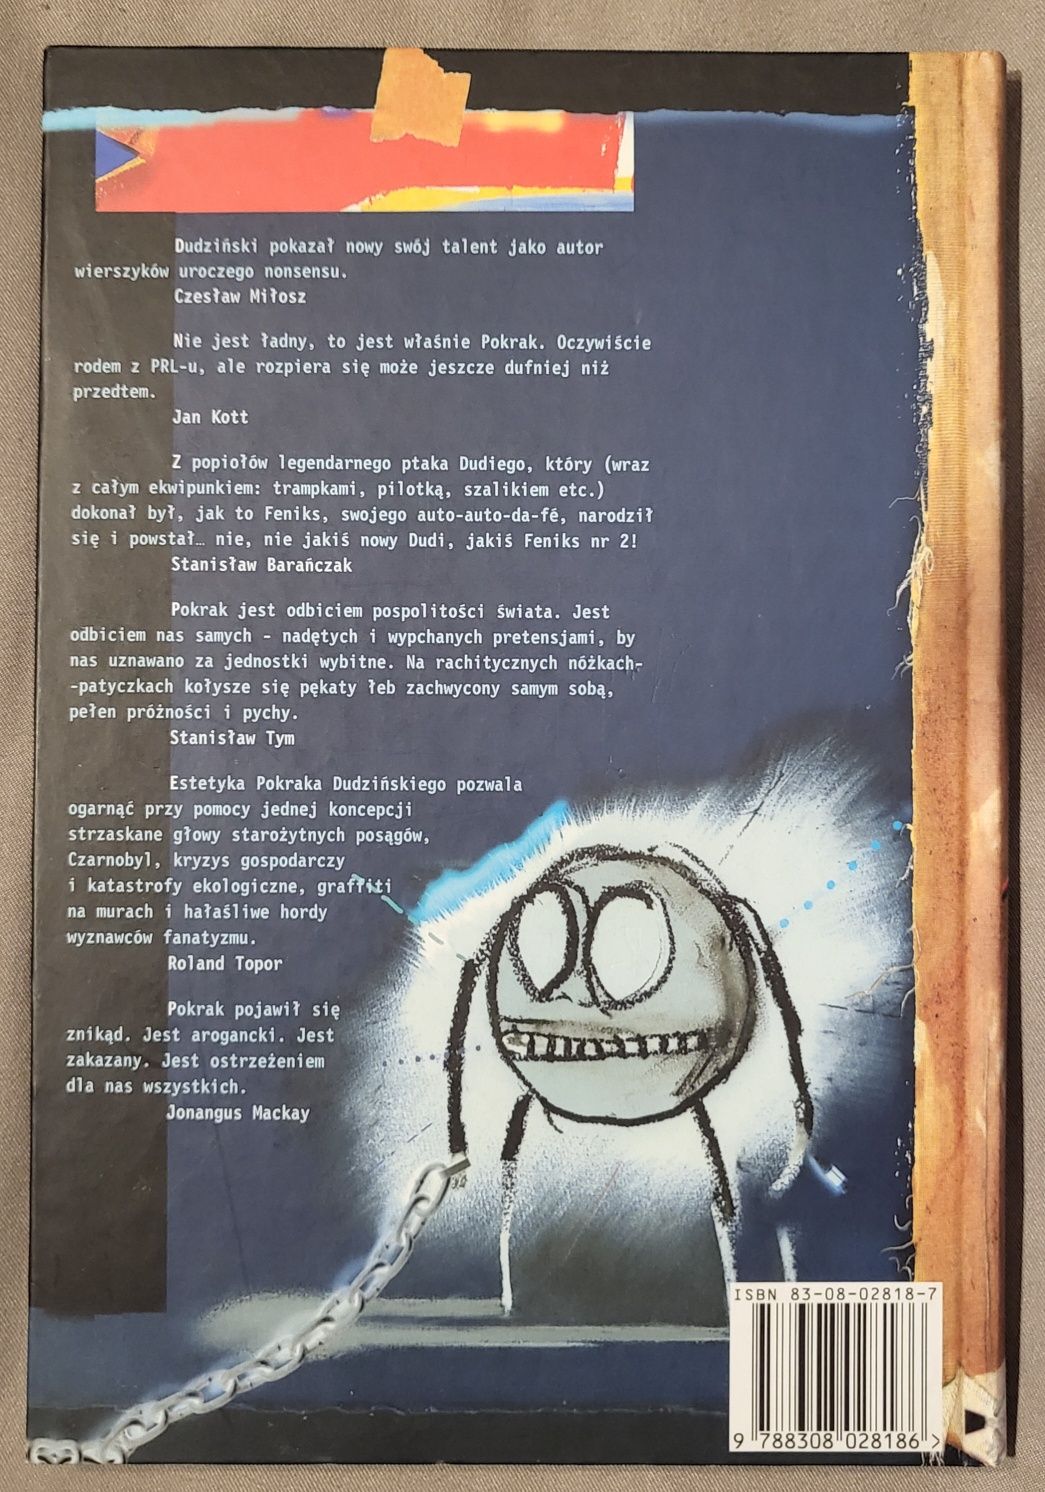 Dudziński pokazał nowy swój talent jako autor
wierszyków uroczego nonsensu.
Czesław Miłosz
Nie jest ładny, to jest właśnie Pokrak. Oczywiście
rodem z PRL-u, ale rozpiera się może jeszcze dufniej niż
przedtem.
Jan Kott
Z popiołów legendarnego ptaka Dudiego, który (wraz
z całym ekwipunkiem: trampkami, pilotką, szalikiem etc.)
dokonał był, jak to Feniks, swojego auto-auto-da-fé, narodził
się i powstał… nie, nie jakiś nowy Dudi, jakiś Feniks nr 2!
Stanisław Barańczak
Pokrak jest odbiciem pospolitości świata. Jest
odbiciem nas samych - nadętych i wypchanych pretensjami, by
nas uznawano za jednostki wybitne. Na rachitycznych nóżkach-
-patyczkach kołysze się pękaty łeb zachwycony samym sobą,
pełen próżności i pychy.
Stanisław Tym
Estetyka Pokraka Dudzińskiego pozwala
ogarnąć przy pomocy jednej koncepcji
strzaskane głowy starożytnych posągów,
Czarnobyl, kryzys gospodarczy
i katastrofy ekologiczne, graffiti
na murach i hałaśliwe hordy
wyznawców fanatyzmu.
Roland Topor
Pokrak pojawił się
znikąd. Jest arogancki. Jest
zakazany. Jest ostrzeżeniem
dla nas wszystkich.
Jonangus Mackay
ISBN 83-08-02818-7
9 788308 028186 >